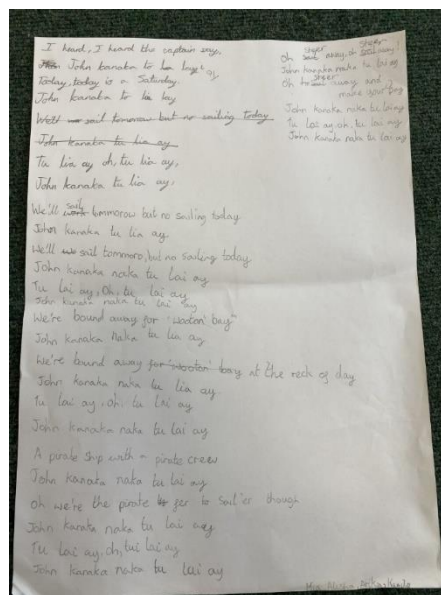 I heard, I heard the captain say,
John kanaka tu lia ay
Today, today is a Saturday.
John kanaka tu lia bay
sail tomorow but no sailing today
John kanaka tu lia ay
Tu lia ay oh, tu lia ay,
John kanaka tu lia ay,
We'll sail tommorow but no sailing today
John kanaka tu lia ay
We'll sail tommoro, but no sailing today
John kanaka naka tu lai ay
Tu lai ay, Oh, tu lai ay
John kanaka naka tu lai ay
We're bound away for "wooton bay"
John kanaka naka tu lia ay
We're bound away for "wooton" bay at the reck of day
John kanaka naka tu lia ay
Tu lai ay, oh, tu lai ay
John kanaka naka tu lai ay
A pirate ship with a pirate crew
John kanaka naka tu lai ay
Oh we're the pirate fer to sail'er though
John kanaka naka tu lai ay
Tu lai ay, oh, tui lai ay
John kanaka naka tu lai ay
Oh steer away, oh steer away!
John kanaka naka tu lai ay
Oh steer away and
make your
John kanaka naka tu lai ay
Tu lai ay, oh, tu lai ay
John kanaka naka tu lai ay